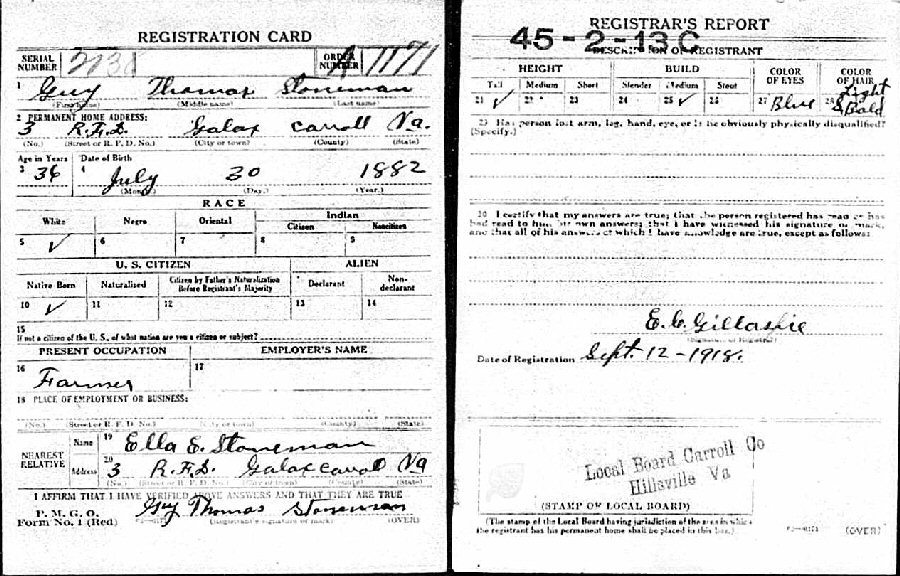 REGISTRATION CARD
SERIAL NUMBER 2131 ORDER NUMBER A 1171
1 Guy Thomas Stoneman
(First name) (Middle name) (Last name)
2 PERMANENT HOME ADDRESS:
3 R.F.D. Galax Carroll Va.
(No.) (Street or R. F. D. No.) (City or town) (County) (State)
Age in Years Date of Birth
3 36 4 July 30 1882
(Month.) (Day.) (Year.)
RACE
White Negro Oriental Indian
Citizen Noncitizen
5 ✓ 6 7 8 9
U. S. CITIZEN ALIEN
Native Born Naturalized Citizen by Father's Naturalization Before Registrant's Majority Declarant Non-declarant
10 ✓ 11 12 13 14
15
If not a citizen of the U. S., of what nation are you a citizen or subject?
PRESENT OCCUPATION EMPLOYER'S NAME
16 Farmer 17
18 PLACE OF EMPLOYMENT OR BUSINESS:
(No.) (Street or R. F. D. No.) (City or town) (County) (State)
NEAREST RELATIVE Name 19 Ella E. Stoneman
Address 20 3 R.F.D. Galax Carroll Va
(No.) (Street or R. F. D. No.) (City or town) (County) (State)
I AFFIRM THAT I HAVE VERIFIED ABOVE ANSWERS AND THAT THEY ARE TRUE
P. M. G. O.
Form No. 1 (Red) Guy Thomas Stoneman
(Registrant's signature or mark) (OVER)
REGISTRAR'S REPORT
45-2-13 C
DESCRIPTION OF REGISTRANT
HEIGHT BUILD COLOR OF EYES COLOR OF HAIR
Tall Medium Short Slender Medium Stout
21 ✓ 22 23 24 25 ✓ 26 27 Blue 28 Light & Bald
29 Has person lost arm, leg, hand, eye, or is he obviously physically disqualified?
(Specify.)
30 I certify that my answers are true; that the person registered has read or has
had read to him his own answers; that I have witnessed his signature or mark,
and that all of his answers of which I have knowledge are true, except as follows:
E. C. Gillaspie
(Signature of Registrar)
Date of Registration Sept. 12-1918.
Local Board Carroll Co
Hillsville Va
(STAMP OF LOCAL BOARD)
(The stamp of the Local Board having jurisdiction of the area in which
the registrant has his permanent home shall be placed in this box.)
(OVER)